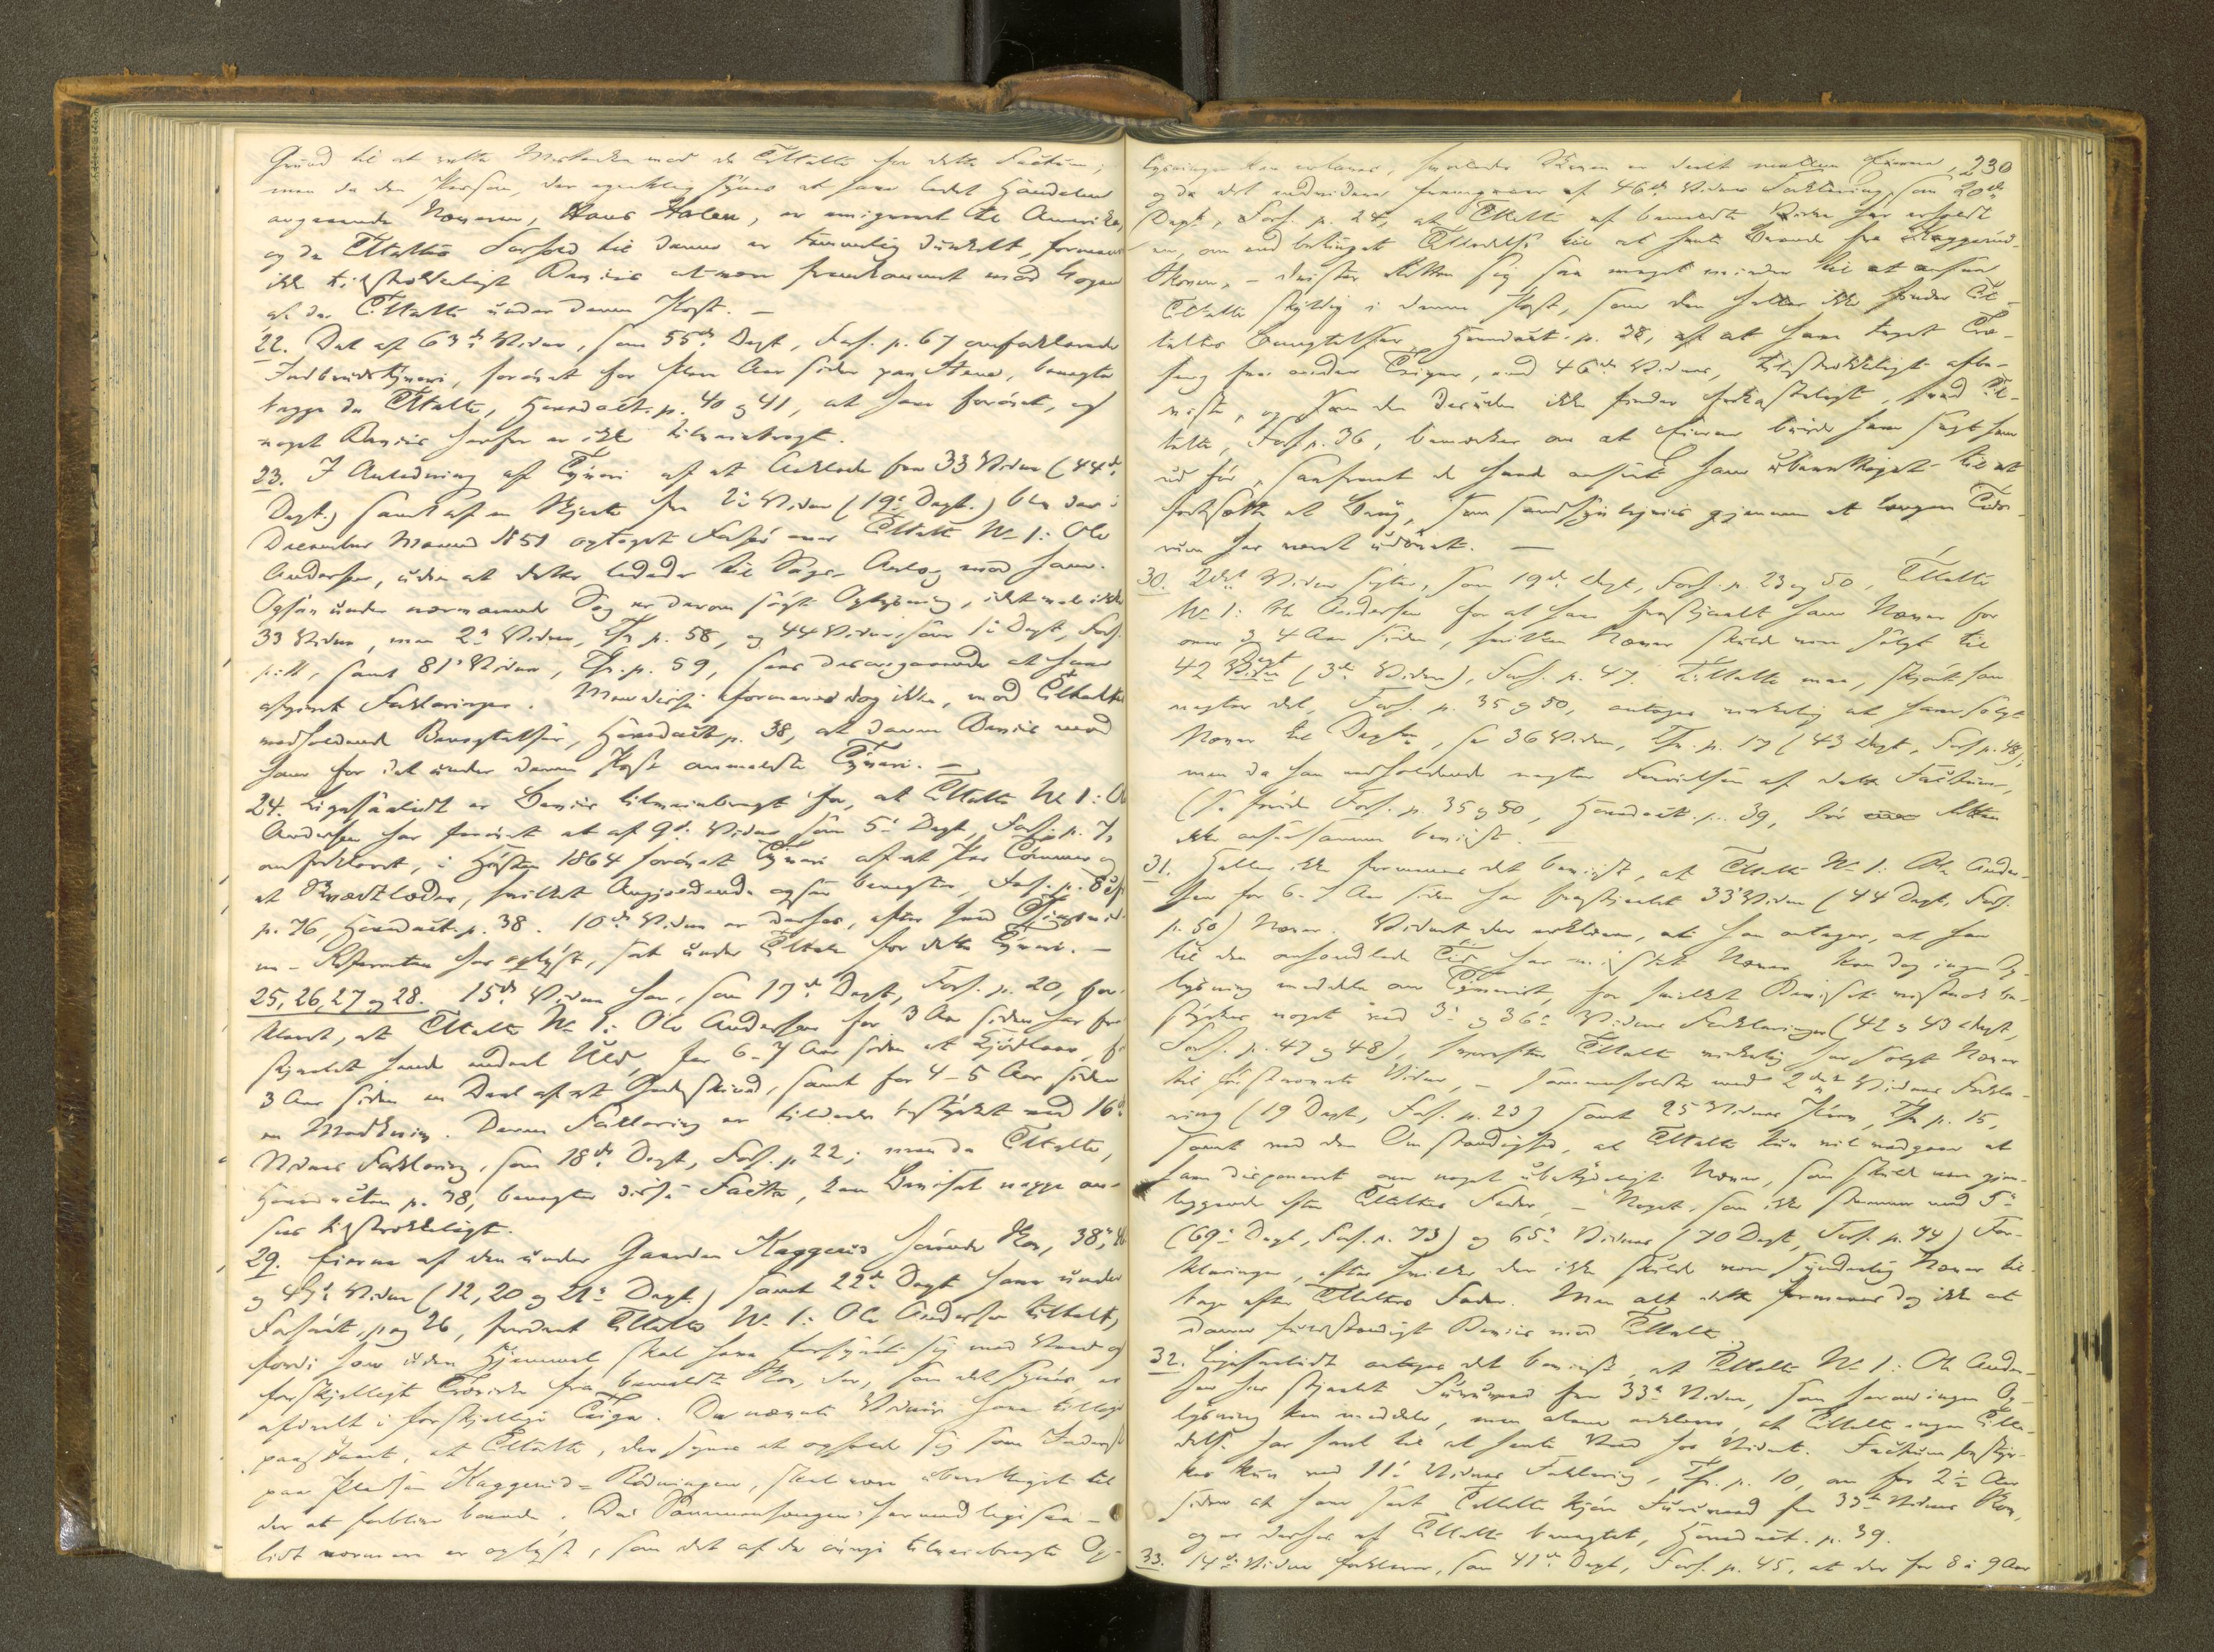 Grund til at rette Mistanke mod de Tiltalte for dette Factum;
men da den Person, der egentlig synes at have ledet Handelen
angaaende Næveren, Hans Holen, er emigreret til Amerika,
og da Tiltaltes Forhold til denne er temmelig dunkelt, formenes
ikke tilstrækkeligt Beviis at være fremkommet mod Nogen
af de Tiltalte under denne Post. —
22. Det af 63de Vidne, som 55de Dept, Forh. p. 67 omforklarede
Indbrudstyveri, forøvet for flere Aar siden paa , benegte
begge de Tiltalte, Hovedact. p. 40 og 41, at have forøvet, og
noget Beviis herfor er ikke tilveiebragt.
23. I Anledning af Tyveri af et fra 33 Vidne (44de
Dept.) samt af en Skjorte fra 2det Vidne (19de Dept.) blev der i
December Maaned 1851 optaget Forhør over Tiltalte No 1: Ole
Andersen, uden at dette ledede til Sags Anlæg mod ham.
Ogsaa under nærværende Sag er derom søgt Oplysning, idet
33 Vidne, men 2det Vidne, Thv. p. 58, og 44 Vidne, som 1ste Dept, Forh.
p. 11, samt 81de Vidne, Thv. p. 59, have desangaaende
afgivet Forklaringer. formenes dog ikke, mod Tiltaltes
vedholdende Benegtelse, Hovedact. p. 38, at danne Beviis mod
ham for det under denne Post anmeldte Tyveri. —
24. Ligesaalidt er Beviis tilveiebragt for, at Tiltalte No 1: Ole
Andersen har forøvet et af 9de Vidne som 5te Dept, Forh. p. 7,
omforklaret, i Høsten 1864 forøvet Tyveri af et Par og
et , hvilket Angjeldende ogsaa benegter, Forh. p. 8 og
p. 76, Hovedact. p. 38. 10de Vidne er derhos, efter hvad
har oplyst, sat under Tiltale for dette Tyveri. —
25, 26, 27 og 28. 15de Vidne har, som 17de Dept, Forh. p. 20, for-
klaret, at Tiltalte No 1: Ole Andersen for 3 Aar siden har fra-
stjaalet hende endeel Uld, for 6-7 Aar siden et Kjødlaar, for
3 Aar siden en Deel af et Gedeskind, samt for 4-5 Aar siden
en . Denne Forklaring er tildeels bestyrket ved 16de
Vidnes Forklaring, som 18de Dept, Forh. p. 22; men da Tiltalte,
Hovedacten p. 38, benegter disse Facta, kan Beviset neppe an-
sees tilstrækkeligt.
29. Eierne af den under Gaarden Kaggerud hørende Skov, 38te, 46
og 47de Vidne (12, 20 og 21de Dept.) samt 22de Dept have under
Forhøret, pag 26, forlangt Tiltalte No 1: Ole Andersen tiltalt,
fordi han uden Hjemmel skal have forsynet sig med Ved og
forskjelligt Trævirke fra bemeldte Skov, der, som det synes, er
afdeelt i forskjellige Teiger. De nævnte Vidner have tillige
paastaaet, at Tiltalte, der synes at opholde sig som Inderst
paa Pladsen Kaggerud-Rødningen, skal være uberettiget til
der at forblive boende. Da Sammenhængen hermed ligesaa-
lidt nærmere er oplyst, som det af de øvrige tilveiebragte Op-
230
lysninger kan erfares, hvorledes Skoven er deelt mellem Eierne,
og da det endvidere fremgaaer af 46de Vidnes Forklaring, som 20de
Dept, Forh. p. 24, at Tiltalte af bemeldte Vidne har erholdt
en, om end betinget Tilladelse til at hente Brænde fra Kaggerud-
Skoven, — drister Retten sig saa meget mindre til at ansee
Tiltalte skyldig i denne Post, som den heller ikke finder Til-
taltes Benegtelse, Hovedact. p. 38, af at have taget Træ-
fang fra andre Teiger, end 46de Vidnes, tilstrækkeligt afbe-
vist, og som den desuden ikke finder forkasteligt, hvad Til-
talte, Forh. p. 36, bemærker om at Eierne burde have sagt ham
ud før, saafremt de havde anseet ham uberettiget til at
fortsætte et Brug, som sandsynligviis gjennem et længere Tids-
rum har været udøvet. —
30. 2det Vidne sigter, som 19de Dept, Forh. p. 23 og 50, Tiltalte
No 1: Ole Andersen for at have frastjaalet ham Næver for
omtr. 3 á 4 Aar siden, hvilken Næver skulde være solgt til
42 Dept (3de Vidne), Forh. p. 47. Tiltalte maa, skjønt han
negter det, Forh. p. 35 og 50, antages virkelig at have solgt
Næver til Depten, se 36 Vidne, Thv. p. 17 (43 Dept, Forh. p. 48);
men da han vedholdende negter Forøvelsen af dette Factum,
(se Forh. p. 35 og 50, Hovedact. p. 39, tør Retten
ikke ansee samme beviist. —
31. Heller ikke formenes det beviist, at Tiltalte No 1: Ole Ander-
sen for 6-7 Aar siden har frastjaalet 33de Vidne (44 Dept, Forh.
p. 50) Næver. Vidnet der erklærer, at han antager, at han
til den omhandlede Tid har mistet Næver, kan dog ingen Op-
lysning meddele om Tyveriet, for hvilket Beviset vistnok be-
styrkes noget ved 3de og 36te Vidnes Forklaringer (42 og 43 Dept,
Forh. p. 47 og 48), hvorefter Tiltalte virkelig har solgt Næver
til førstnævnte Vidne, — sammenholdte med 2det Vidnes Forkla-
ring (19 Dept, Forh. p. 23) samt 25 Vidnes , Thv. p. 15,
samt ved den Omstændighed, at Tiltalte kun vil vedgaae at
have disponeret over noget ubetydeligt Næver, som skulde være gjen-
liggende efter Tiltaltes Fader, — Noget, som ikke stemmer med 5te
(69de Dept, Forh. p. 73) og 65de Vidnes (70 Dept, Forh. p. 74) For-
klaringer, efter hvilke der ikke skulde være synderlig Næver til-
bage efter Tiltaltes Fader. Men alt dette formenes dog ikke at
danne fuldstændigt Beviis mod Tiltalte.
32. Ligesaalidt antages det beviist, at Tiltalte No 1: Ole Ander-
sen har stjaalet Furuved fra 33de Vidne, som herom ingen Op-
lysning kan meddele, men alene erklærer, at Tiltalte ingen Tilla-
delse har havt til at hente Ved hos Vidnet. Factum bestyr-
kes kun ved 11te Vidnes Forklaring, Thv. p. 10, om for 2½ Aar
siden at have seet Tiltalte kjøre Furuved fra 33de Vidnes Skov,
og er derhos af Tiltalte benegtet, Hovedact. p. 39.
33. 14de Vidne forklarer, som 41de Dept, Forh. p. 45, at der for 8 á 9 Aar